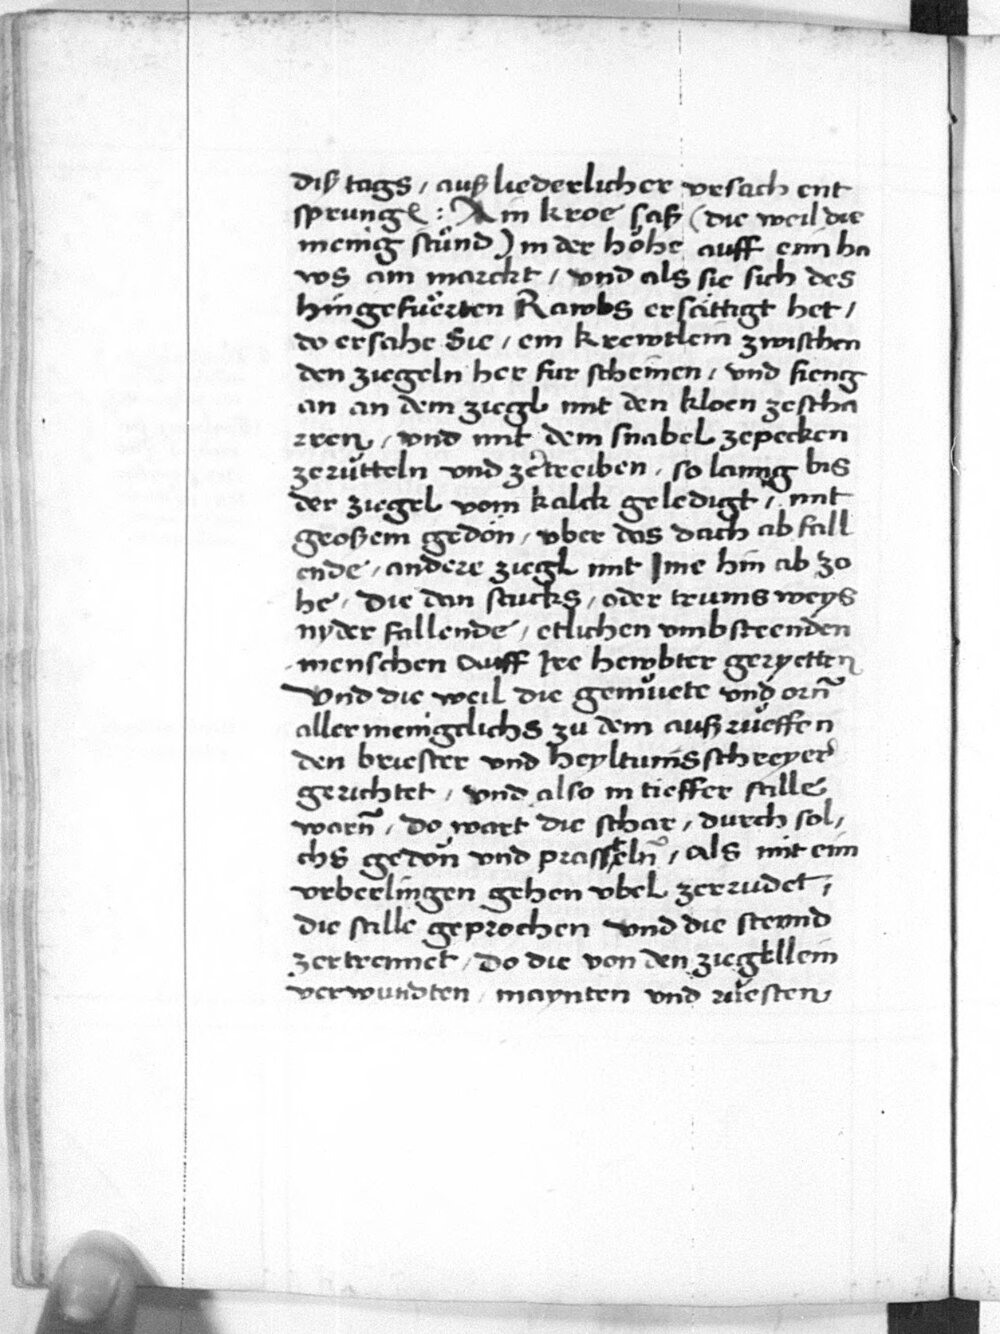 diß tags / auß liederlicher vrsach ent
sprungẽ : Ain kroe saß (die weil die
menig stůnd) in der höhe auff eim ha
ws am marckt / vnd als sie sich des
hingefüerten Rawbs ersättigt het /
do ersahe Sie / ein krewtlein zwischen
den ziegeln her fur scheinen / vnd fieng
an an dem ziegl mit den kloen zescha
rren / vnd mit dem snabel zepecken
zerütteln vnd zetreiben / so lanng bis
der ziegel vom kalck geledigt / mit
großem gedön / vber das dach ab fall
ende / andere ziegl mit Ime hin ab zo
he / Die dan stucks / oder trums weys
nyder fallende / etlichen vmbsteenden
menschen Auff Ire hewbter geryetten
Vnd die weil die gemüete vnd orñ
aller menigclichs zu dem außrüeffen
den briester vnd heyltumsschreyer
gerichtet / vnd also in tieffer stille
warñ / Do wart die schar / durch sol /
chs gedön vnd prasselñ / Als mit eim
vrberlingen gehen vbel zerrudet /
die stille geprochen vnd die steend
zertrennet / Do die von den ziegellein
verwundten / maynten vnd rüesten